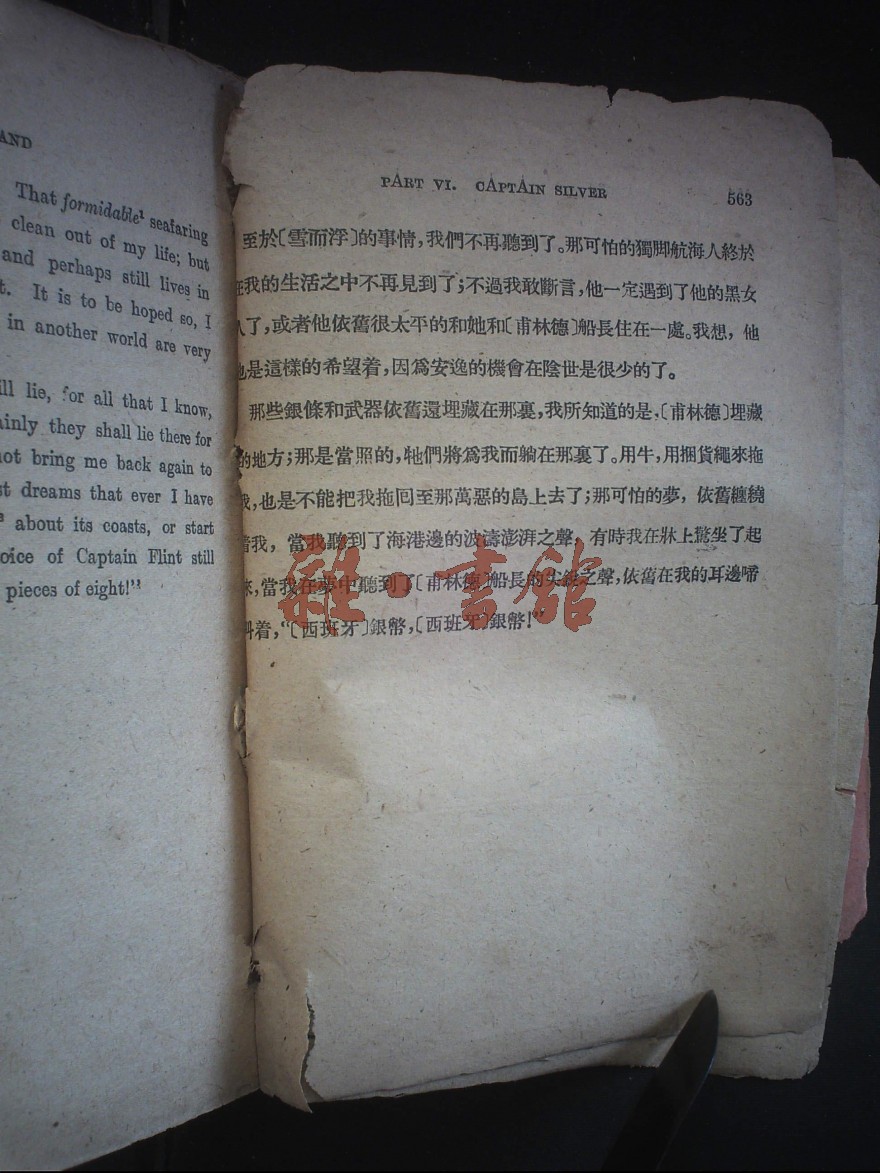 AND
That formidable¹ seafaring
clean out of my life; but
and perhaps still lives in
It is to be hoped so, I
in another world are very
lie, for all that I know,
they shall lie there for
bring me back again to
dreams that ever I have
about its coasts, or start
of Captain Flint still
pieces of eight!"³
PART VI. CAPTAIN SILVER
563
至於〔雪而浮〕的事情，我們不再聽到了。那可怕的獨脚航海人終於
在我的生活之中不再見到了；不過我敢斷言，他一定遇到了他的黑女
人了，或者他依舊很太平的和她和〔甫林德〕船長住在一處。我想，他
也是這樣的希望着，因爲安逸的機會在陰世是很少的了。
那些銀條和武器依舊還埋藏在那裏，我所知道的是，〔甫林德〕埋藏
的地方；那是當照的，牠們將爲我而躺在那裏了。用牛，用捆貨繩來拖
我，也是不能把我拖回至那萬惡的島上去了；那可怕的夢，依舊纏繞
着我，當我聽到了海港邊的波濤澎湃之聲，有時我在牀上驚坐了起
來，當我在夢中聽到了〔甫林德〕船長的尖銳之聲，依舊在我的耳邊啼
叫着，“〔西班牙〕銀幣，〔西班牙〕銀幣！”
雜·書館